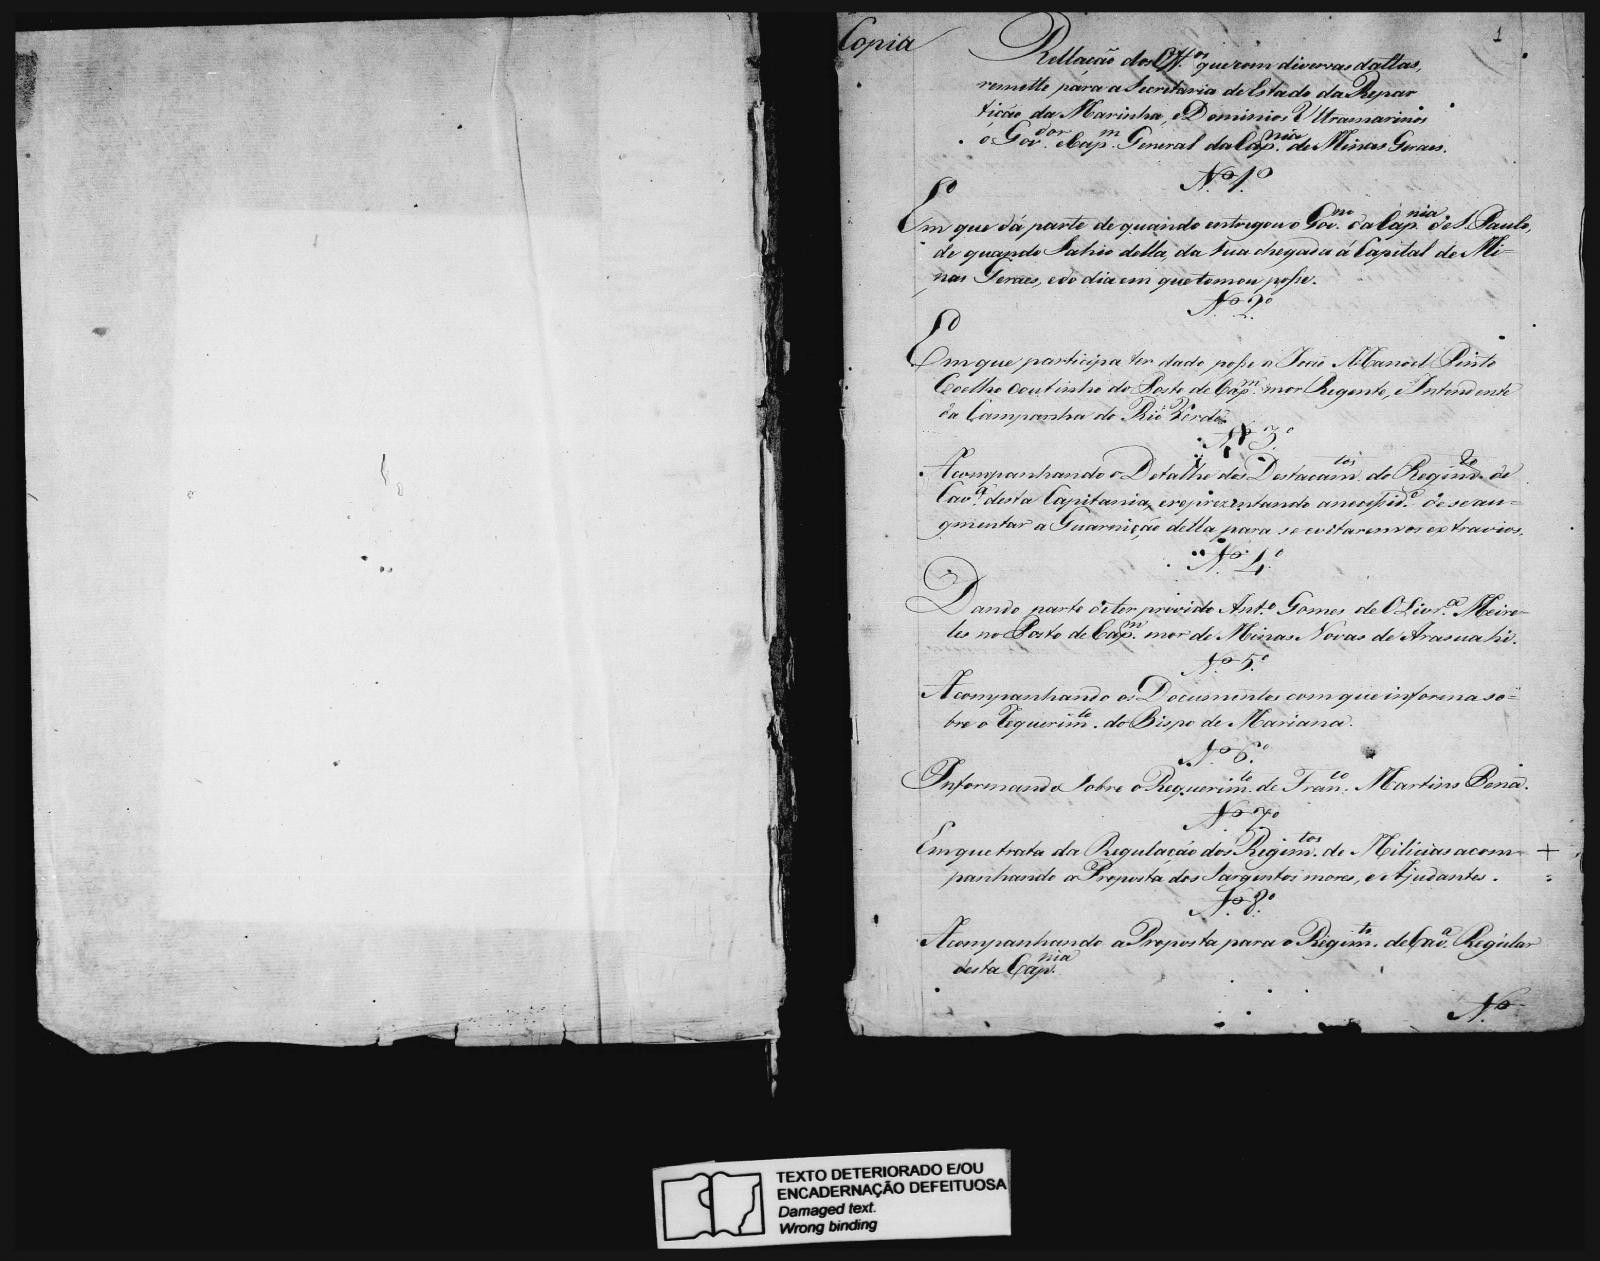 Copia
1
Rellação dos Off.os que com diversas dattas,
remette para a Secretaria de Estado da Repar
tição da Marinha, e Dominios Ultramarinos
o Gov.dor e Cap.m General da Cap.nia de Minas Geraes.
N.o 1.o
Em que dá parte de quando entregou o Gov.no da Cap.nia de S. Paulo,
de quando Sahio della, da sua chegada á Capital de Mi=
nas Geraes, e do dia em que tomou posse.
N.o 2.o
Em que participa ter dado posse a João Manoel Pinto
Coelho Coutinho do Posto de Cap.m mor Regente, e Intendente
da Campanha do Rio Verde.
N.o 3.o
Acompanhando o Detalhe dos Destacam.tos do Regim.to de
Cav.a desta Capitania, e reprezentando a necessid.e de se au=
gmentar a Guarnição della para se evitarem os extravios.
N.o 4.o
Dando parte de ter provido Ant.o Gomes de Oliv.ra Meire=
les no Posto de Cap.m mor de Minas Novas de Arasuahi.
N.o 5.o
Acompanhando os Documentos com que informa so=
bre o Requerim.to do Bispo de Mariana.
N.o 6.o
Informando Sobre o Requerim.to de Fran.co Martins Pena.
N.o 7.o
Em que trata da Regulação dos Regim.tos de Milicias acom= +
panhando a Proposta dos Sargentos mores, e Ajudantes.
N.o 8.o
Acompanhando a Proposta para o Regim.to de Cav.a Regular
desta Cap.nia
N.o
TEXTO DETERIORADO E/OU
ENCADERNAÇÃO DEFEITUOSA
Damaged text.
Wrong binding